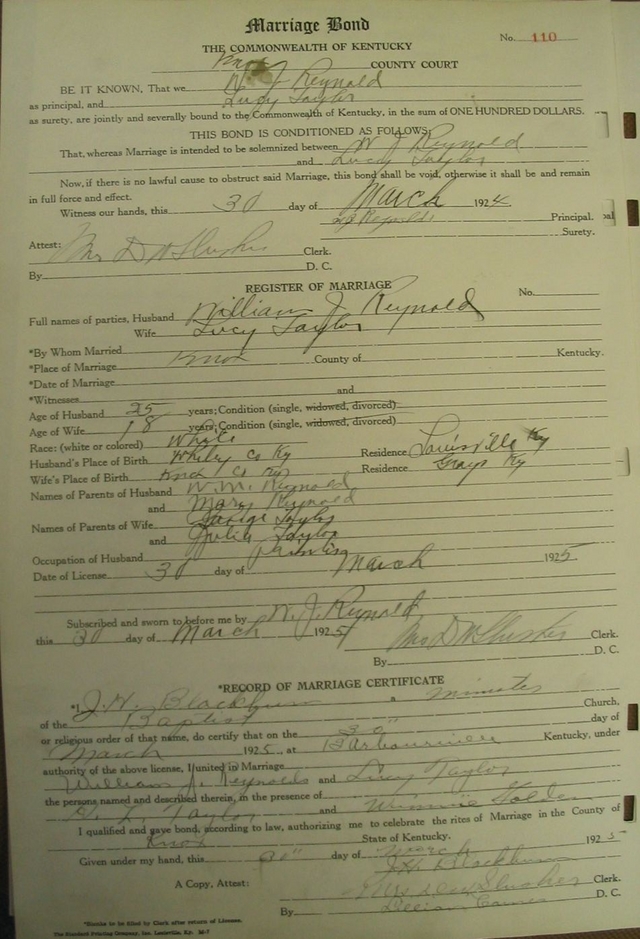 Marriage Bond
No. 110
THE COMMONWEALTH OF KENTUCKY
Knox COUNTY COURT
BE IT KNOWN, That we W. J. Reynold
as principal, and Lucy Taylor
as surety, are jointly and severally bound to the Commonwealth of Kentucky, in the sum of ONE HUNDRED DOLLARS.
THIS BOND IS CONDITIONED AS FOLLOWS:
That, whereas Marriage is intended to be solemnized between W J Reynold
and Lucy Taylor
Now, if there is no lawful cause to obstruct said Marriage, this bond shall be void, otherwise it shall be and remain
in full force and effect.
Witness our hands, this 30 day of March 1924
Reynolds Principal.
Surety.
Attest: Mrs D W Slusher Clerk.
By D. C.
REGISTER OF MARRIAGE
Full names of parties, Husband William J. Reynold No.
Wife Lucy Taylor
*By Whom Married
*Place of Marriage Knox County of Kentucky.
*Date of Marriage
*Witnesses and
Age of Husband 25 years; Condition (single, widowed, divorced)
Age of Wife 18 years; Condition (single, widowed, divorced)
Race: (white or colored) White
Husband's Place of Birth Whitley Co Ky Residence Louisville Ky
Wife's Place of Birth Knox Co Ky Residence Grays Ky
Names of Parents of Husband W. M. Reynold
and Mary Reynold
Names of Parents of Wife George Taylor
and Julia Taylor
Occupation of Husband
Date of License 30 day of March 1925
Subscribed and sworn to before me by W. J. Reynold
this 30 day of March 1925 Mrs D W Slusher Clerk.
By D. C.
*RECORD OF MARRIAGE CERTIFICATE
*I, J. H. Blackburn a minister
of the Baptist Church,
or religious order of that name, do certify that on the 30" day of
March 1925, at Barbourville Kentucky, under
authority of the above license, I united in Marriage
William J. Reynolds and Lucy Taylor
the persons named and described therein, in the presence of
Taylor and Winnie Golden
I qualified and gave bond, according to law, authorizing me to celebrate the rites of Marriage in the County of
Knox State of Kentucky.
Given under my hand, this 30" day of March 1925
J. H. Blackburn
A Copy, Attest: Mrs D W Slusher Clerk.
By D. C.
*Blanks to be filled by Clerk after return of License.
The Standard Printing Company, Inc. Louisville, Ky. M-7